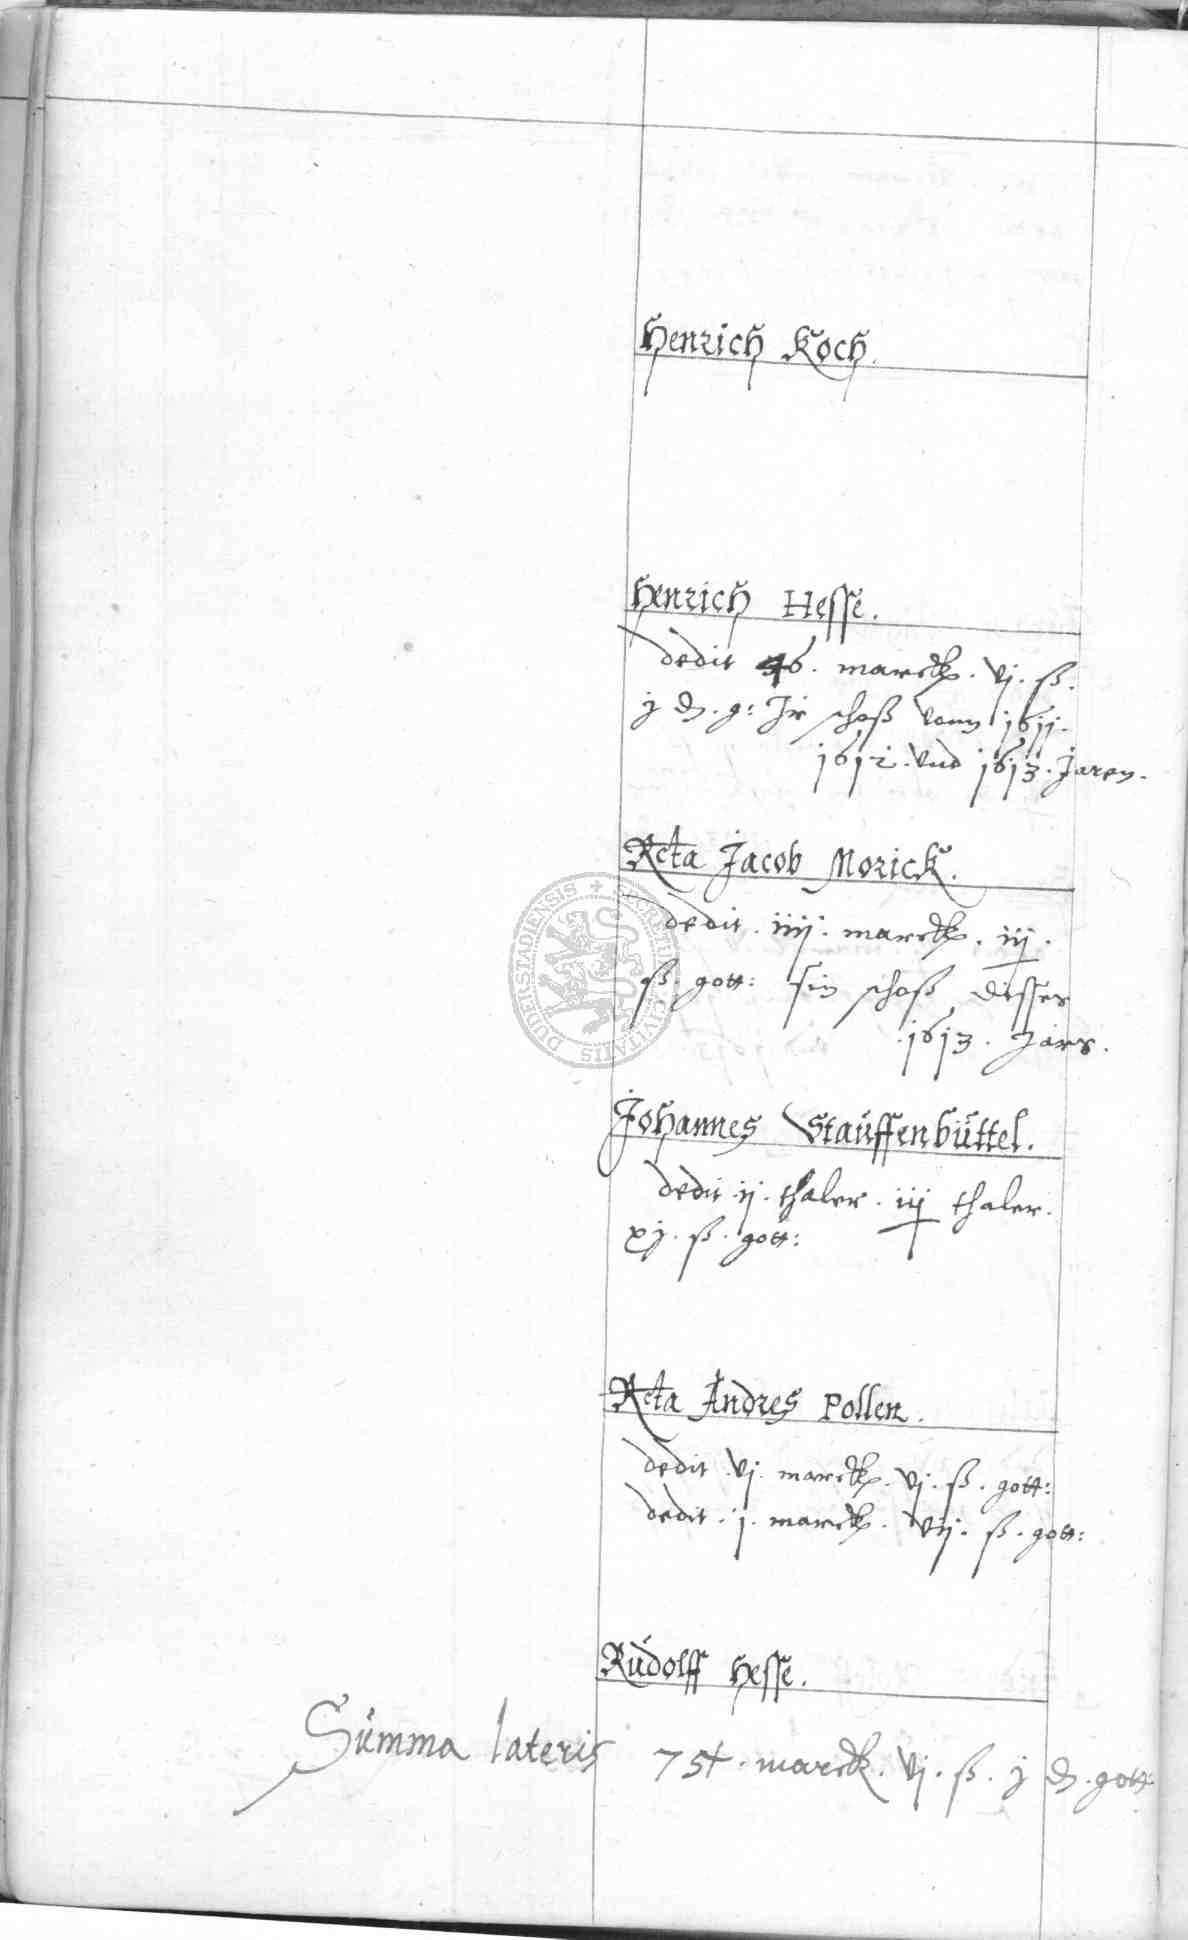 Henrich Koch.
Henrich Hesse.
dedit 46. marck. vj. ß.
j d. g: Ir schoß vom 1611.
1612. vnd 1613. Jaren.
Rcta Jacob Morick.
dedit. iiij. marck. iij.
ß. gott: sin schoß disses
.1613. Jars.
Johannes Stauffenbüttel.
dedit ij. thaler. iij thaler.
xj. ß. gott:
Rcta Andres Pollen.
dedit vj. marck. vj. ß. gott:
dedit. j. marck. vij. ß. gott:
Rudolff Hesse.
Summa lateris 75+. marck. vj. ß. j d. gott:
SECRETUM CIVITATIS DUDERSTADIENSIS